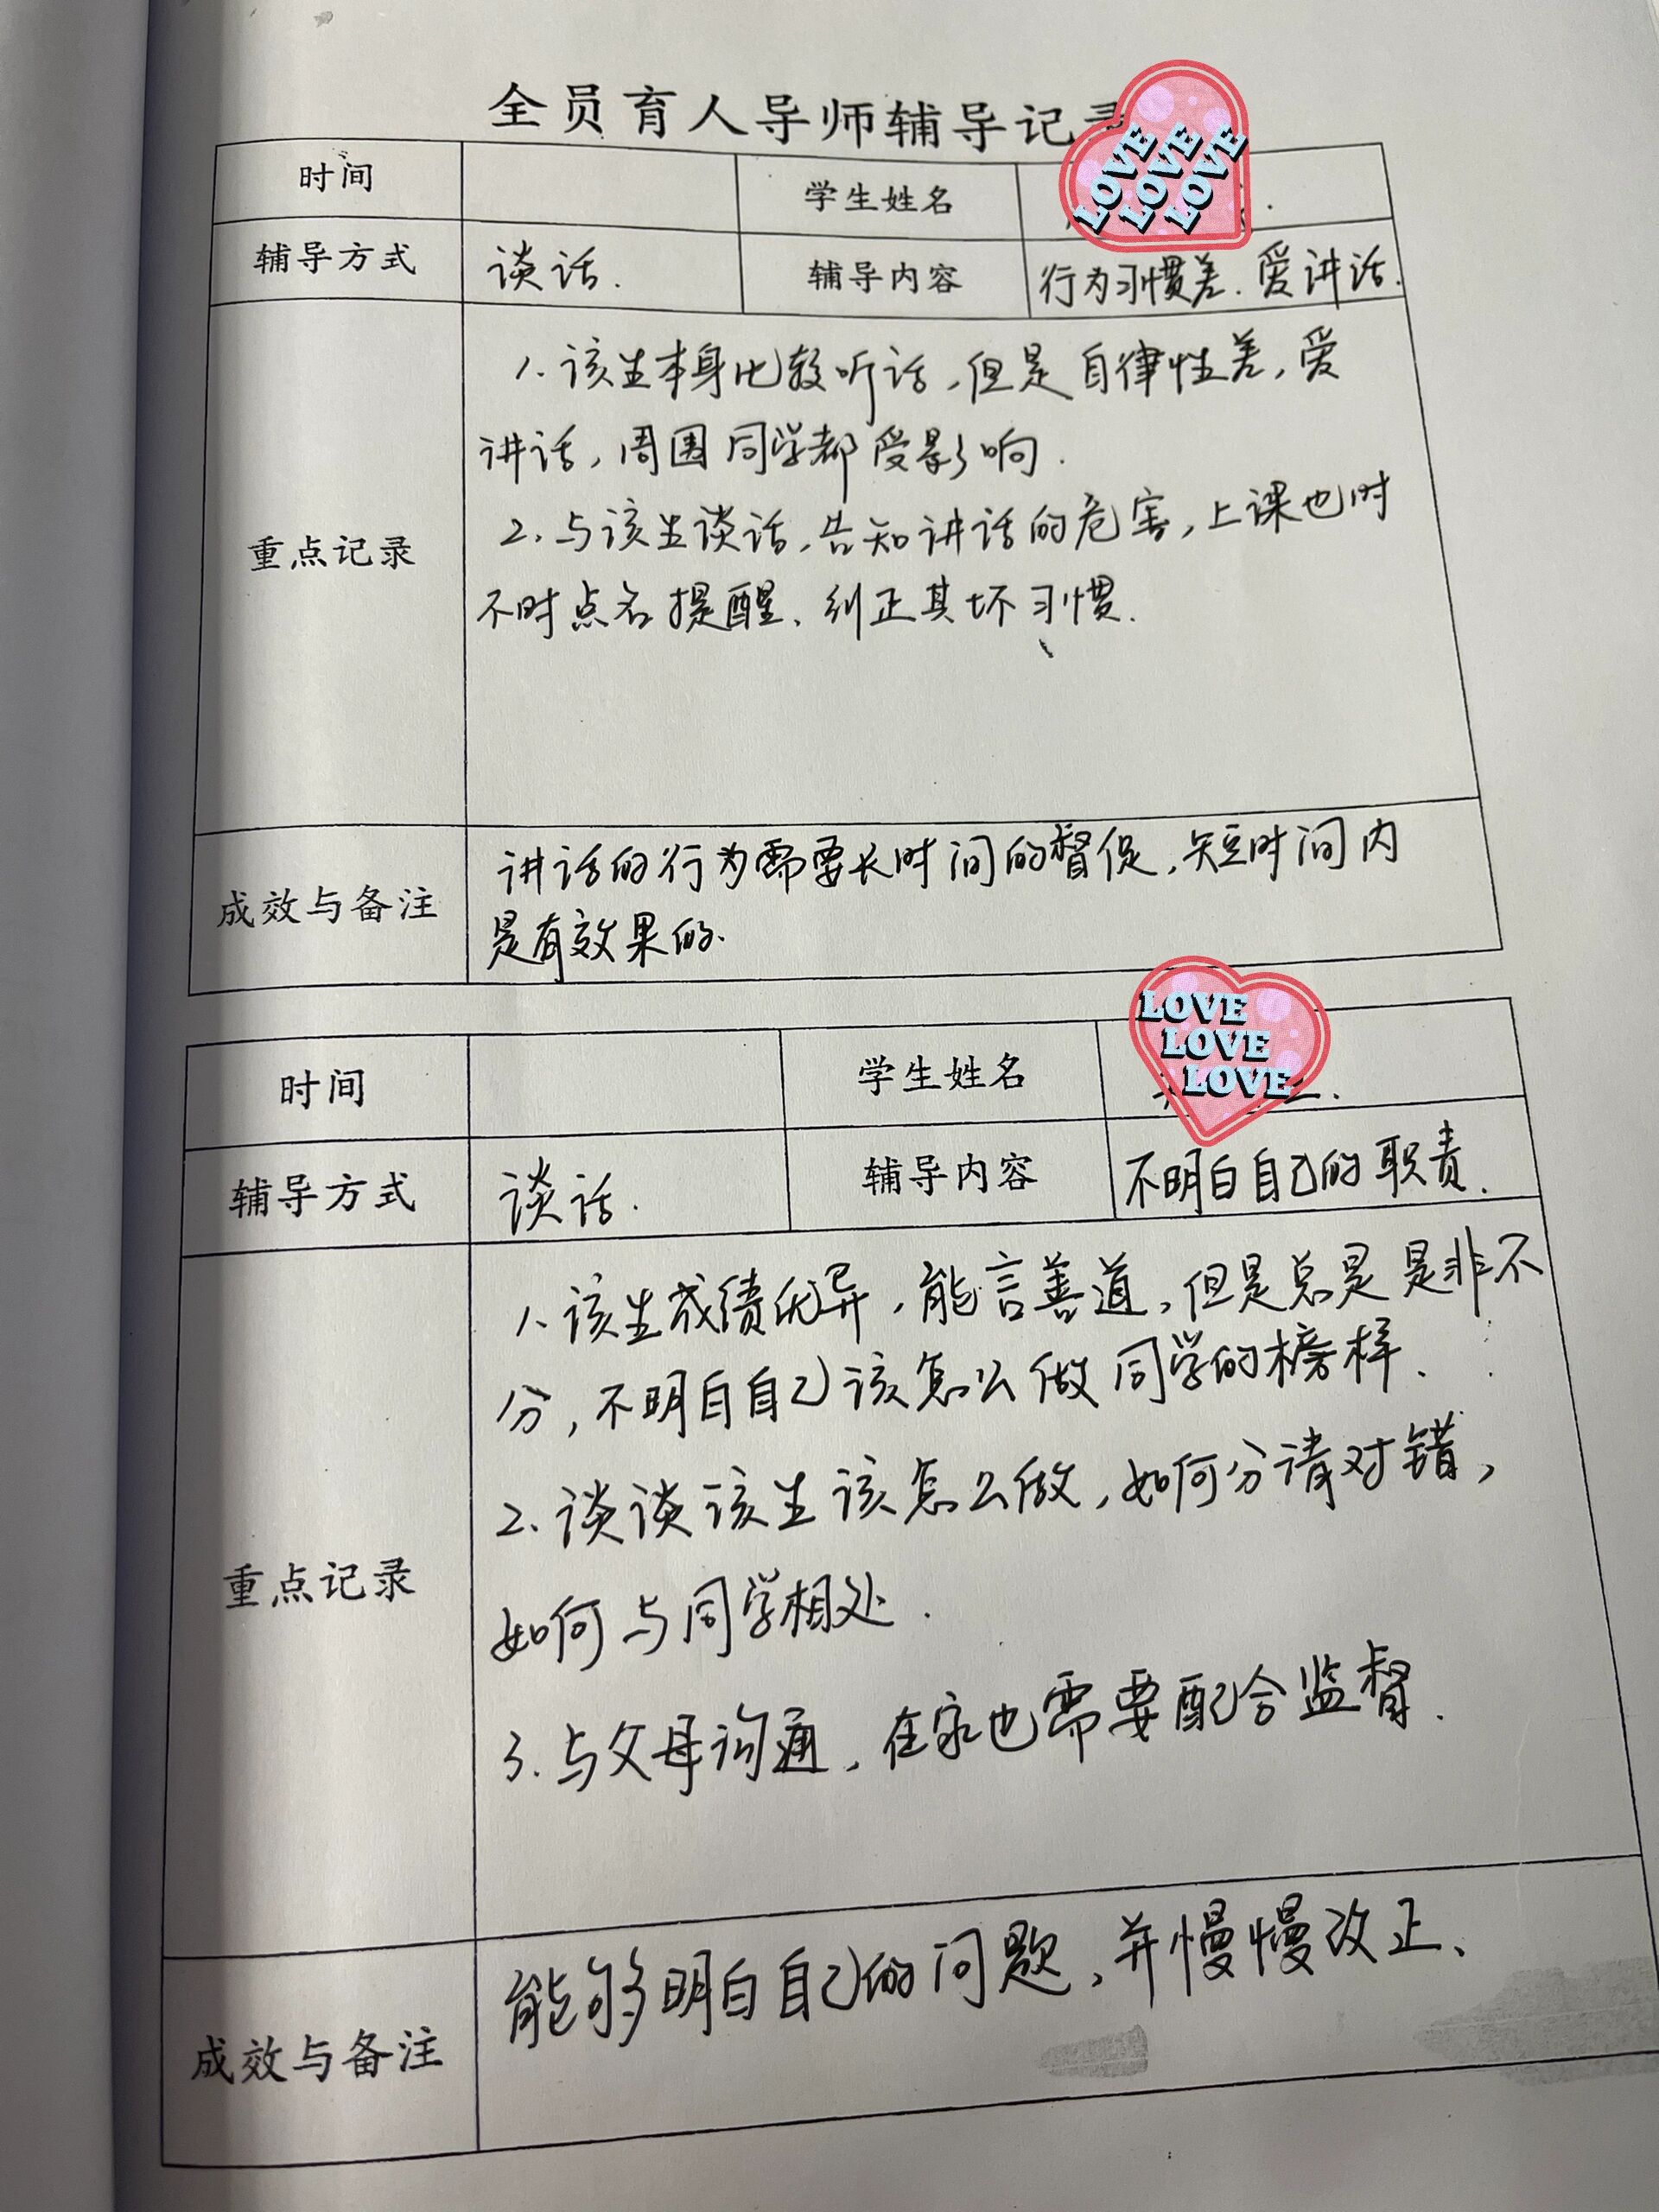 全员育人导师辅导记
LOVE
LOVE
LOVE
时间 学生姓名
辅导方式 谈话. 辅导内容 行为习惯差.爱讲话.
重点记录
1.该生本身比较听话,但是自律性差,爱
讲话,周围同学都受影响.
2.与该生谈话,告知讲话的危害,上课也时
不时点名提醒、纠正其坏习惯.
成效与备注
讲话的行为需要长时间的督促,短时间内
是有效果的.
LOVE
LOVE
LOVE
时间 学生姓名
辅导方式 谈话. 辅导内容 不明白自己的职责.
重点记录
1.该生成绩优异,能言善道,但是总是是非不
分,不明白自己该怎么做同学的榜样.
2.谈谈该生该怎么做,如何分请对错,
如何与同学相处.
3.与父母沟通,在家也需要配合监督.
成效与备注
能够明白自己的问题,并慢慢改正、